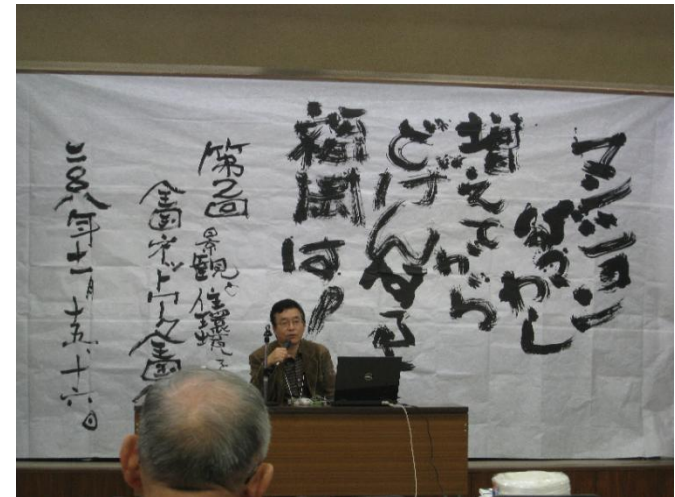 マンション
ばっかし
増えてから
どげんする
福岡は!
第2回 景観と住環境を
全国ネットワーク全国
二〇〇八年十一月十五、十六日